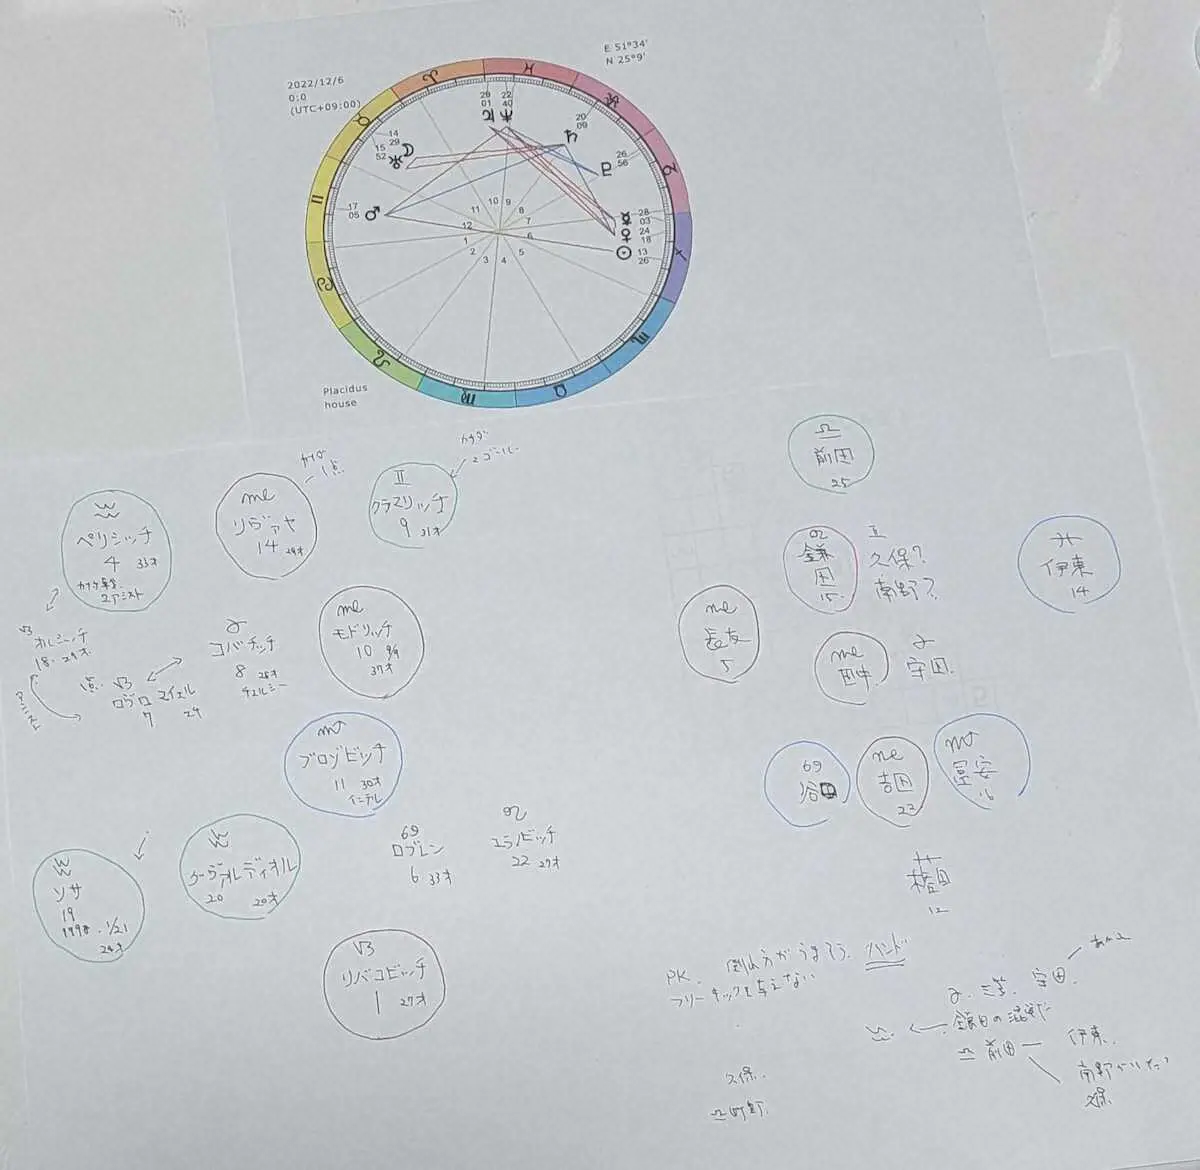 2022/12/6
0:0
(UTC+09:00)
E 51°34'
N 25°9'
29
01
22
40
20
09
26
56
28
03
24
18
13
26
14
29
15
52
17
05
10 9
11 8
12 7
1 6
2 5
3 4
Placidus
house
カナダ
1点
カナダ
2ゴール
ペリシッチ
4 33才
カナダ
2アシスト
リヴァヤ
14 29才
クラマリッチ
9 31才
オルシッチ
18. 29才
アシスト
1点
ロブロマイェル
7 24
コバチッチ
8 28才
チェルシー
モドリッチ
10 9/9
37才
ブロゾビッチ
11 30才
インテル
ソサ
19
1998. 1/21
24才
グヴァルディオル
20 20才
69
ロブレン
6 33才
ユラノビッチ
22 27才
リバコビッチ
1 27才
前田
25
鎌田
15
久保?
南野?
伊東
14
長友
5
田中
守田
69
谷口
吉田
22
冨安
16
権田
12
PK. 倒れ方がうまそう. ハンド
フリーキックを与えない
三笘. 守田.
鎌田の
前田 伊東.
南野
久保.
久保.
町野.